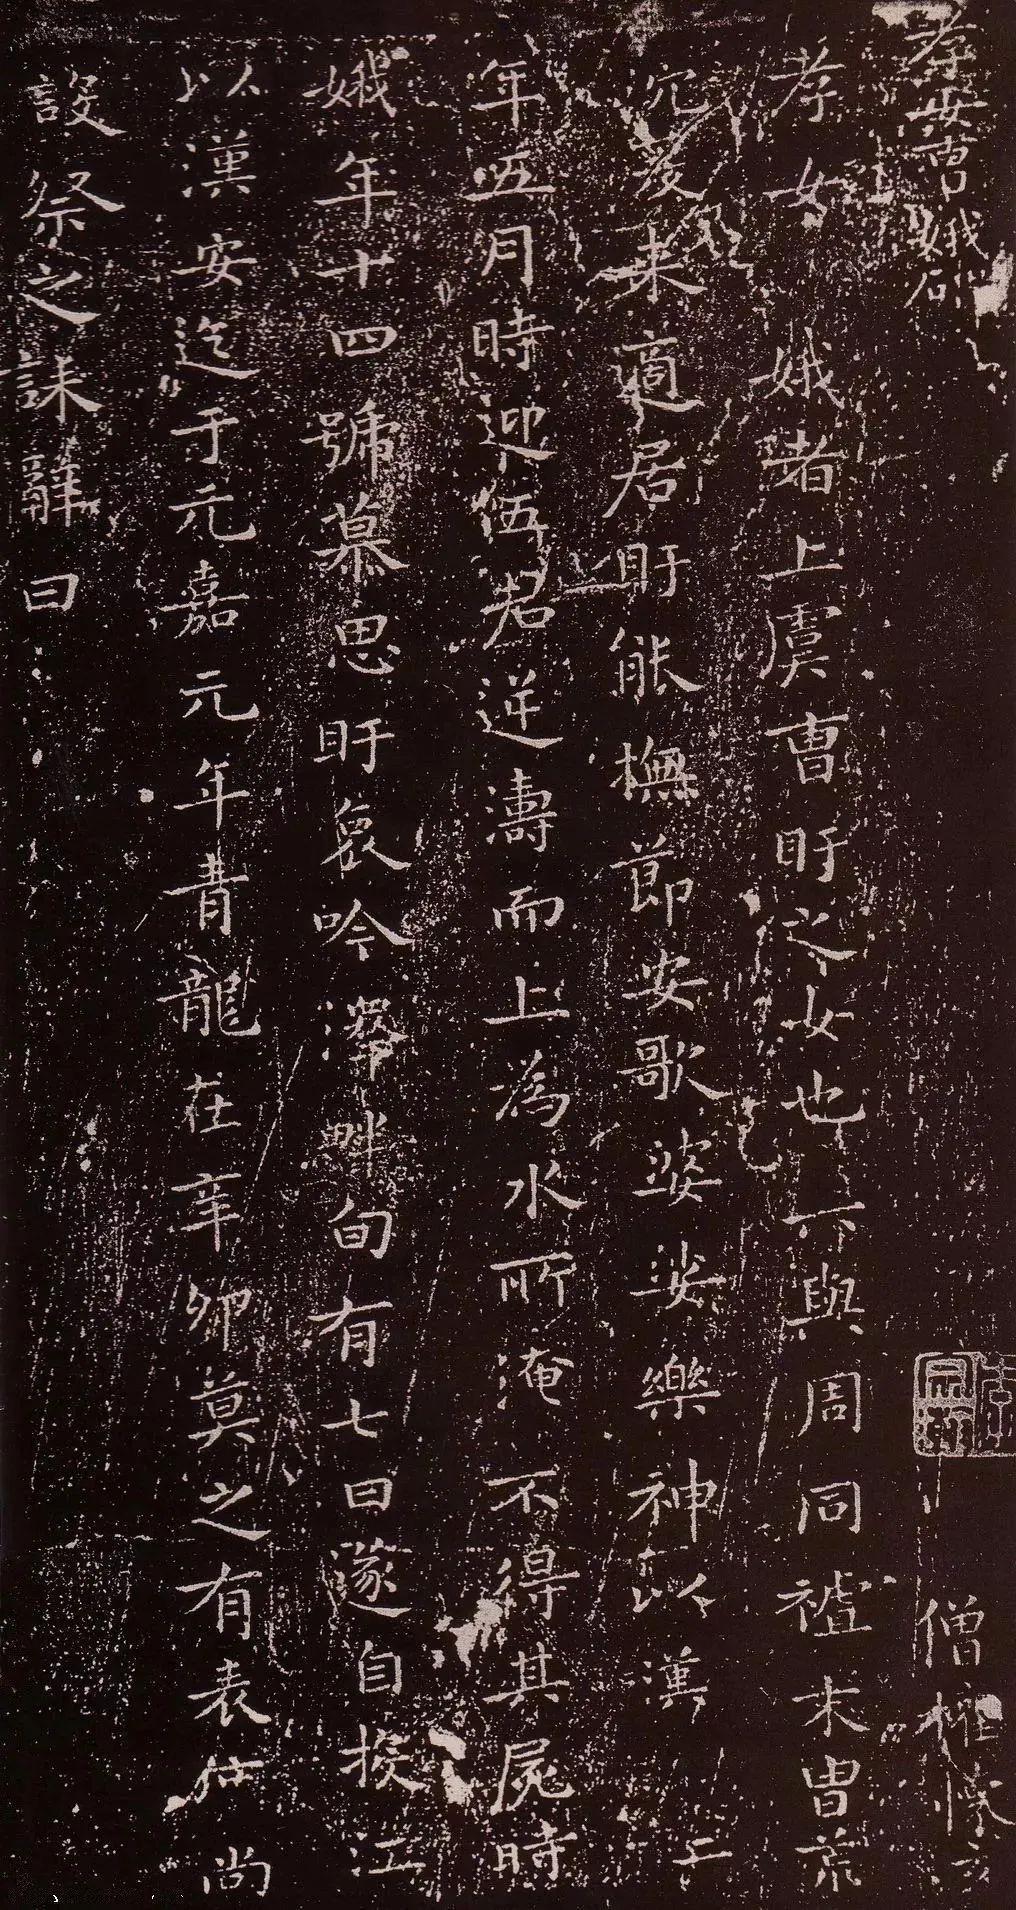 孝女曹娥碑
孝女娥者上虞曹盱之女也其先與周同祖末胄荒
沉爰来適居盱能撫節安歌婆娑樂神以漢安二
年五月時迎伍君逆濤而上為水所淹不得其屍時
娥年十四號慕思盱哀吟澤畔旬有七日遂自投江
以漢安迄于元嘉元年青龍在辛卯莫之有表度尚
設祭之誄辭曰
僧權